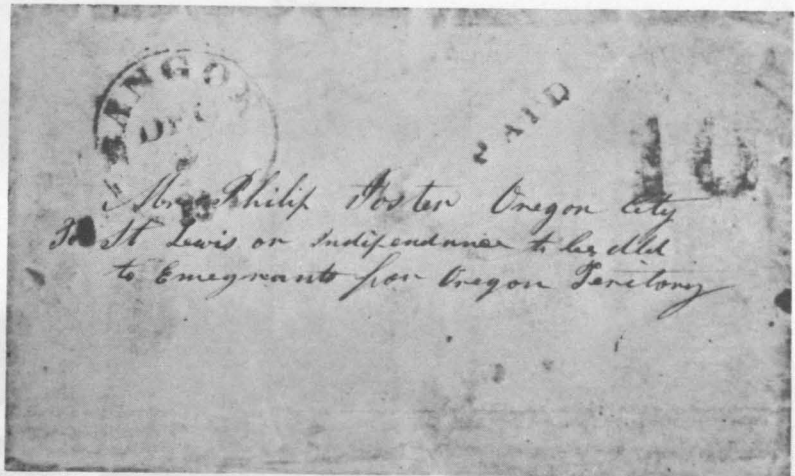 BANGOR
DEC
PAID
10
Mr Philip Foster Oregon City
To St Lewis or indipendance to be dld
to Emegrants for Oregon Teritory